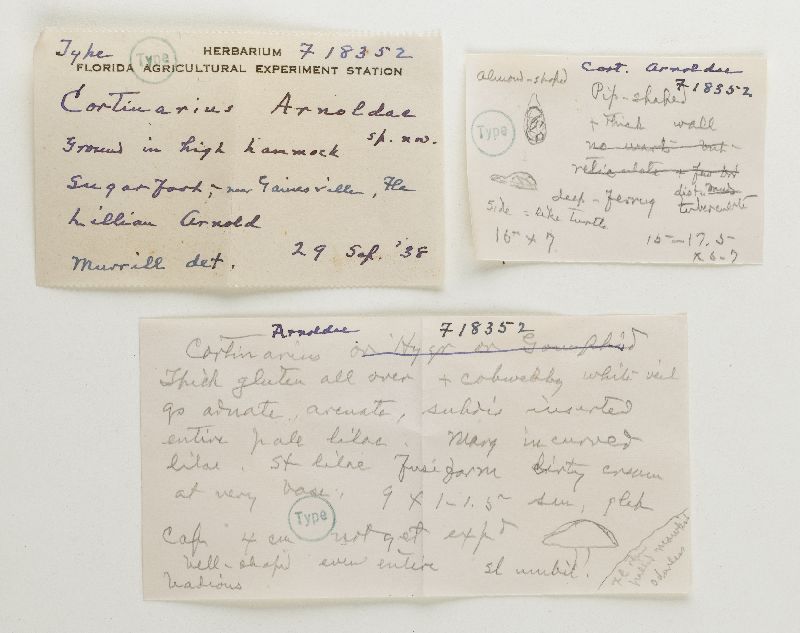 Type Type HERBARIUM F 18352
FLORIDA AGRICULTURAL EXPERIMENT STATION
Cortinarius Arnoldae
sp. nov.
Ground in high hammock
Sugarfoot, near Gainesville, Fla
Lillian Arnold
29 Sep. '38
Murrill det.
Almond-shaped Cort. Arnoldae
F 18352
Pip-shaped
Type + thick wall
no warts but
reticulate + few
dist.
deep-ferrug tuberculate
Side = like turtle
16 x 7 15-17.5
x 6-7
Arnoldae F 18352
Cortinarius or Hygr or Gomphid
Thick gluten all over + cobwebby white veil
gs adnate, arcuate, subdis inserted
entire pale lilac. Marg incurved
lilac. St lilac fusiform dirty cream
at very base, 9 x 1-1.5 sm, glab
Type
Cap 4 cm not yet expd
bell-shapd even entire sl umbil.
odorless